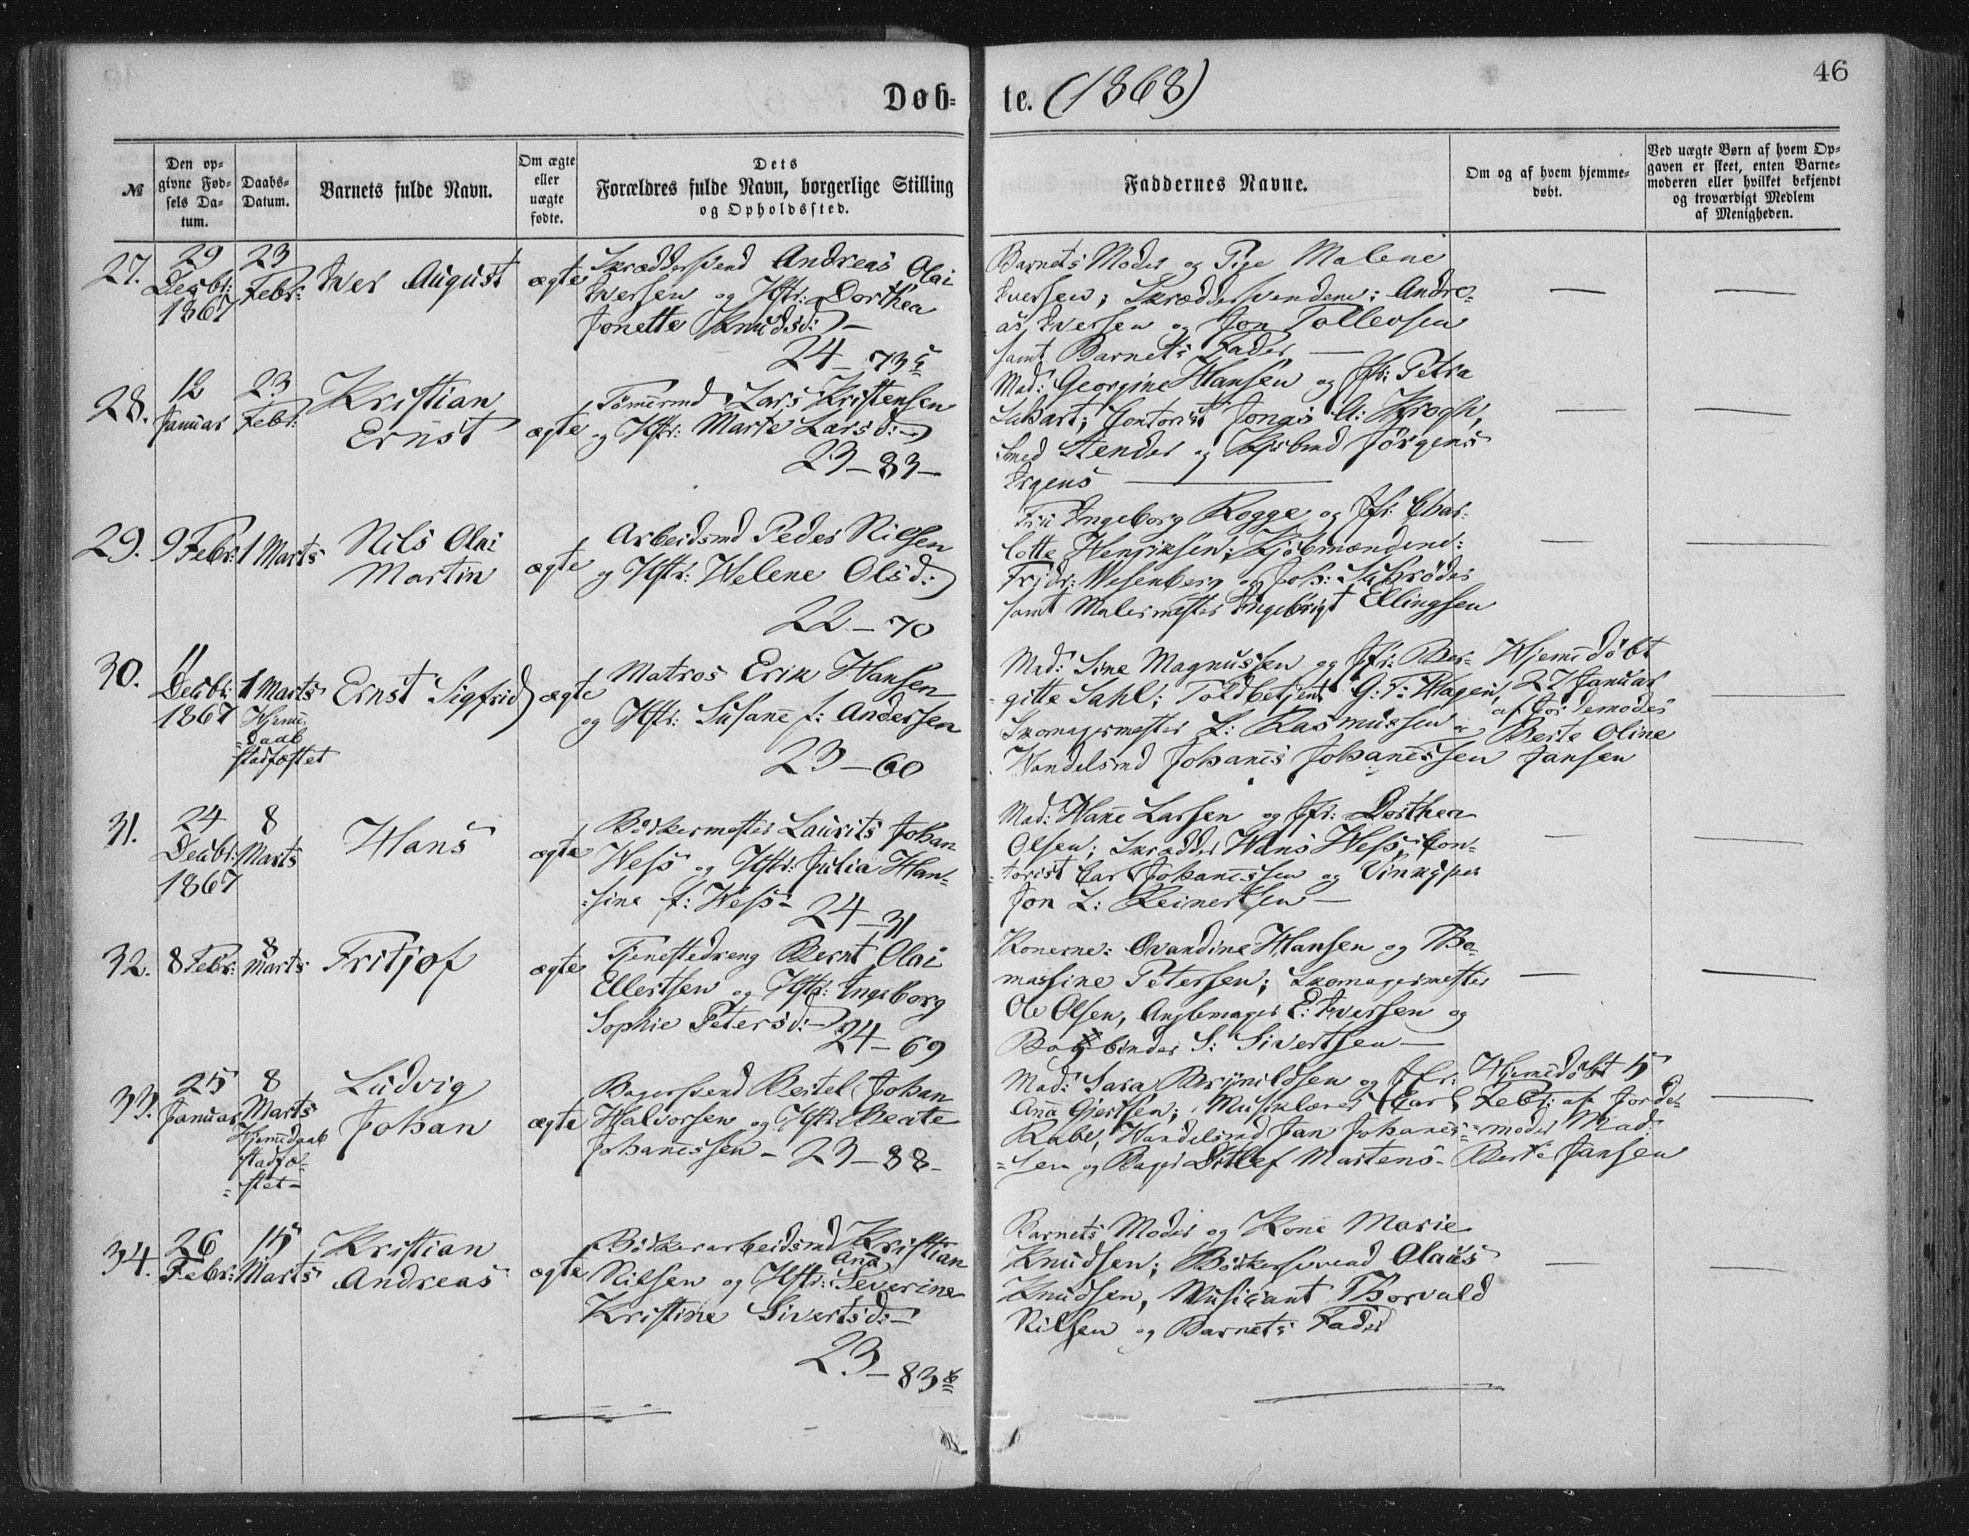 46
Døb-
te. (1868)
№
Den op-
givne Fød-
sels Da-
tum.
Daabs-
Datum.
Barnets fulde Navn.
Om ægte
eller
uægte
fødte.
Dets
Forældres fulde Navn, borgerlige Stilling
og Opholdssted.
Faddernes Navne.
Om og af hvem hjemme-
døbt.
Ved uægte Børn af hvem Op-
gaven er skeet, enten Barne-
moderen eller hvilket bekjendt
og troværdigt Medlem
af Menigheden.
27.
29
Decbr:
1867
23
Febr:
Iver August
ægte
Skræddersvend Andreas Olai
Iversen og Hstr: Dorthea
Jonette Knudsd: –
24 – 73
Barnets Moder og Pige Malene
Iversen; Skræddersvendene: Andre-
as Iversen og Jon Tollevsen
samt Barnets Fader —
28.
12
Januar
23
Febr:
Kristian
Ernst
ægte
Tømermd Lars Kristensen
og Hstr: Marte Larsd: –
23 – 83 –
Mad: Georgine Hansen og Jfr: Petra
Contorist Jonas A: Krogh,
Smed Stender og Jørgens
29.
9 Febr:
1 Marts
Nils Olai
Martin
ægte
Arbeidsmd Peder Nilsen
og Hstr: Helene Olsd:
22 – 70
Fru Ingeborg Rogge og Jfr: Char-
lotte Henriksen; Kjøbmændene:
Fridr: Wesenberg og Joh: Schrøder
samt Malermester Ingebrigt Ellingsen
30.
11
Decbr:
1867
1 Marts
Hjeme
daab
stadfæstet
Ernst Sigfrid
ægte
Matros Erik Hansen
og Hstr: Susane f: Andersen
23 – 60
Mad: Sine Magnussen og Jfr: Ber-
gitte Sahl; Toldbetjent G: T: Hagen,
Skomagermester L: Rasmussen og
Handelsmd Johanes Johanessen
Hjemedøbt
27 Januar
af Jordemoder
Berte Oline
Jansen
31.
24
Decbr:
1867
8
Marts
Hans
ægte
Bødkermester Laurits Johan
Wess og Hstr: Julia Han-
sine f: Wess –
24 – 31
Mad: Hane Larsen og Jfr: Dorthea
Olsen; Skrædder Hans Wess, Con-
torist Carl Johanessen og Vinkyper
Jon L: Reinertsen —
32.
8 Febr:
8
Marts
Fritjof
ægte
Tjenestedreng Bernt Olai
Ellertsen og Hstr: Ingeborg
Sophie Petersd: –
24 – 69
Konerne: Ovandine Hansen og Tho-
massine Petersen; Skomagermester
Ole Olsen, E: Iversen og
Bogbinder S: Sivertsen —
33.
25
Januar
8
Marts
Hjemedaab
stadfæ-
stet –
Ludvig
Johan
ægte
Bagersvend Bertel Johan
Halvorsen og Hstr: Beate
Johanessen – 23 – 88 –
Mad: Sara Brynildsen og Jfr:
Ana Gjertsen; Musiklærer Carl
Rabe, Handelsmd Jan Johanes-
sen og Bager Ditlef Martens –
Hjemedøbt 5
Febr: af Jorde-
moder Mad:
Berte Jansen
34.
26
Febr:
15
Marts
Kristian
Andreas
ægte
Bødkerarbeidsmd Kristian
Nilsen og Hstr: Ana Severine
Kristine Sivertsd: –
23 – 83
Barnets Moder og Kone Marie
Knudsen; Bødkersvend Olaus
Knudsen, Musicant Thorvald
Nilsen og Barnets Fader